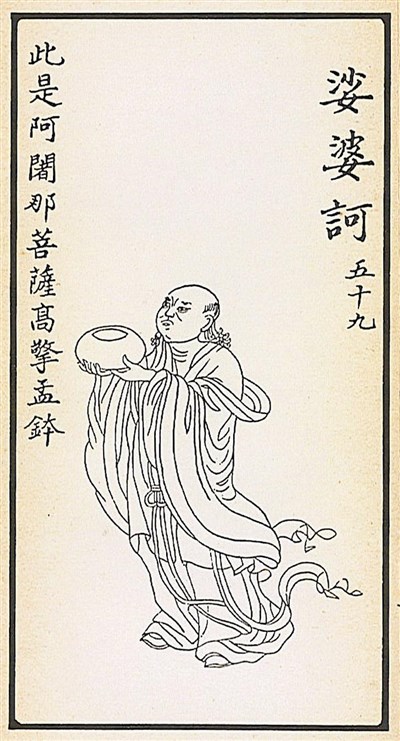 娑婆訶 五十九
此是阿闍那菩薩高擎盂鉢